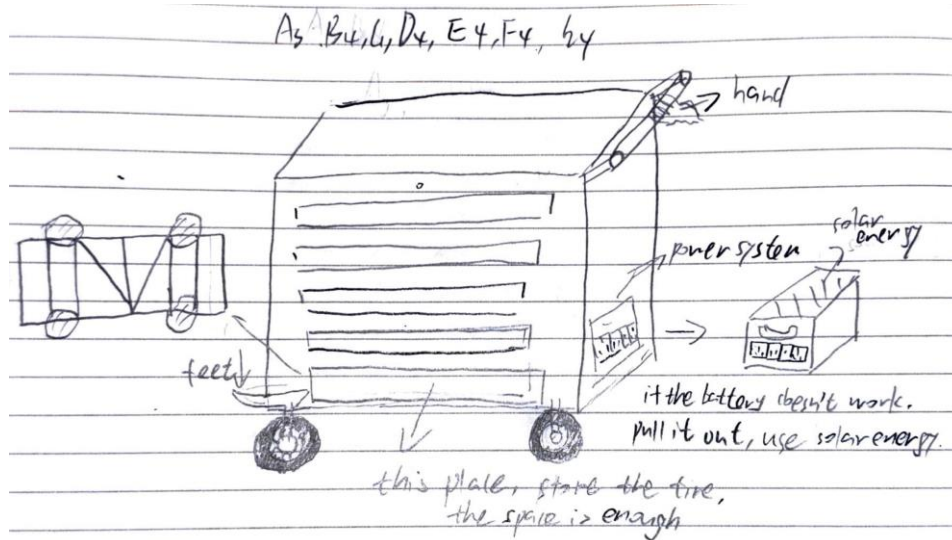 A3 B4, C1, D4, E4, F4, h4
hand
solar
energy
power system
feet
if the battery doesn't work.
pull it out, use solar energy.
this place, store the tire,
the space is enough